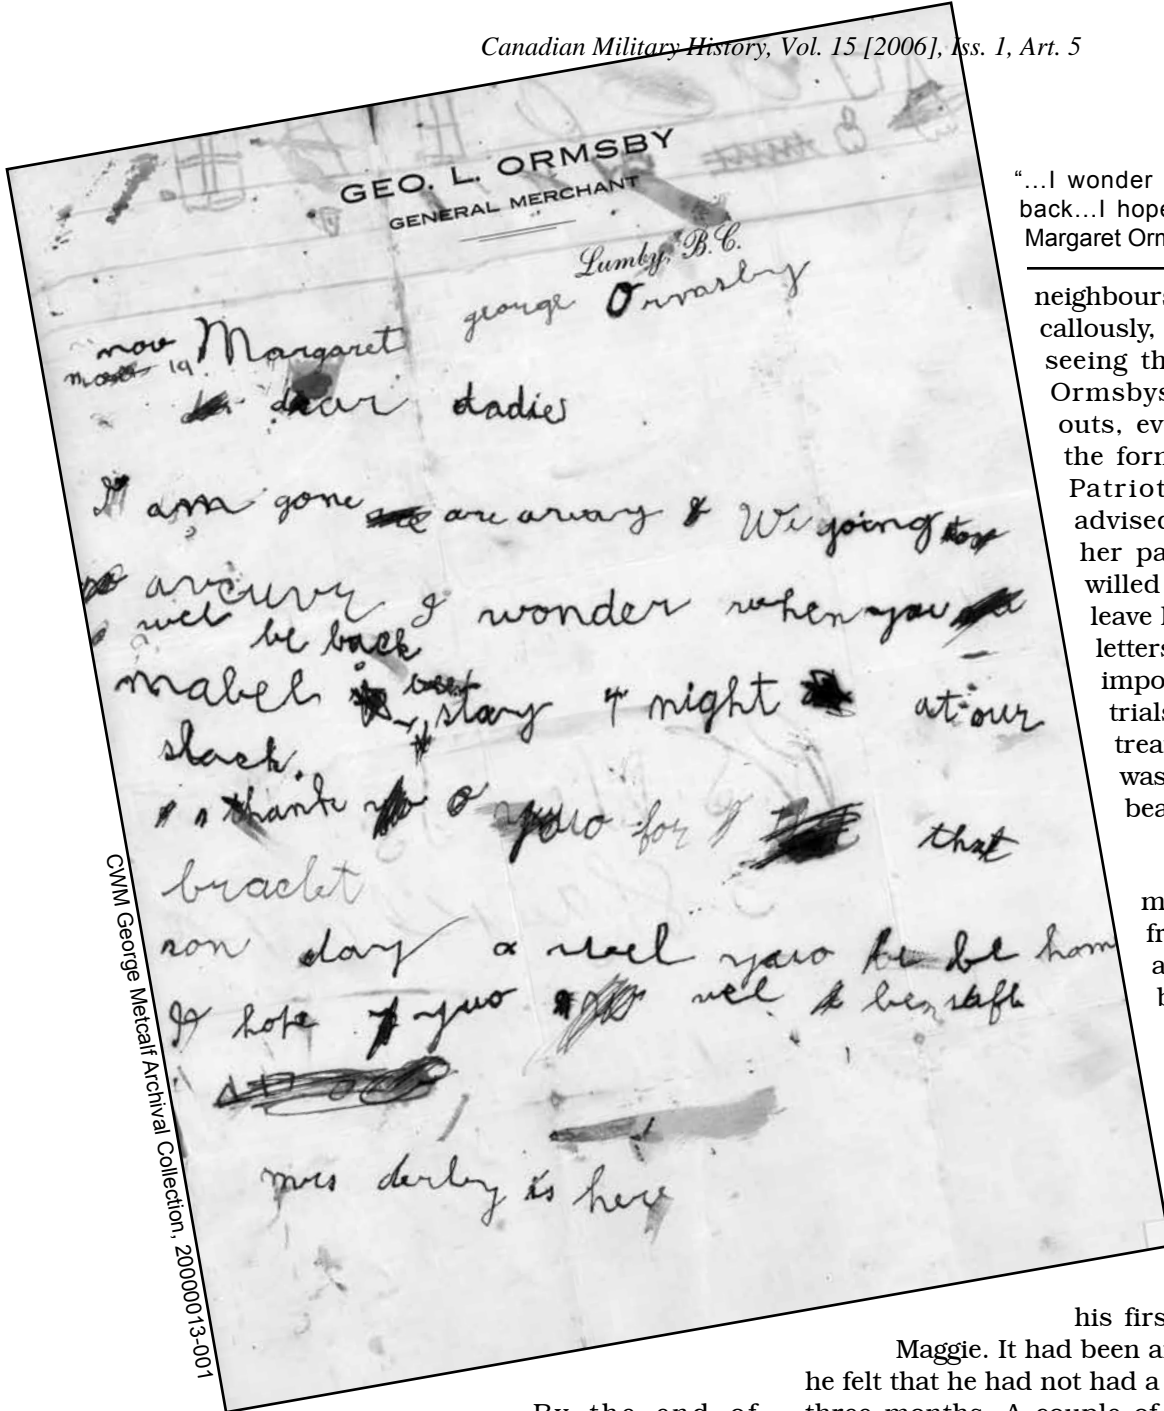 Canadian Military History, Vol. 15 [2006], Iss. 1, Art. 5
GEO. L. ORMSBY
GENERAL MERCHANT
Lumby, B.C.
george Ormasby
nov Margaret
19
dear dadie
I am gone are away & We going
I wonder when you
wel be back
mabel stay night at our
shack.
thank yuo for that
braclt
son day wel yuo be hom
I hope yuo wel be saft
mrs derby is here
CWM George Metcalf Archival Collection, 20000013-001
“…I wonder
back…I hope
Margaret Orm
neighbours
callously,
seeing th
Ormsbys
outs, ev
the forn
Patriot
advised
her pa
willed
leave
letters
impo
trials
trea
was
bea
m
fr
a
b
his firs
Maggie. It had been a
he felt that he had not had a
By the end of three months. A couple of